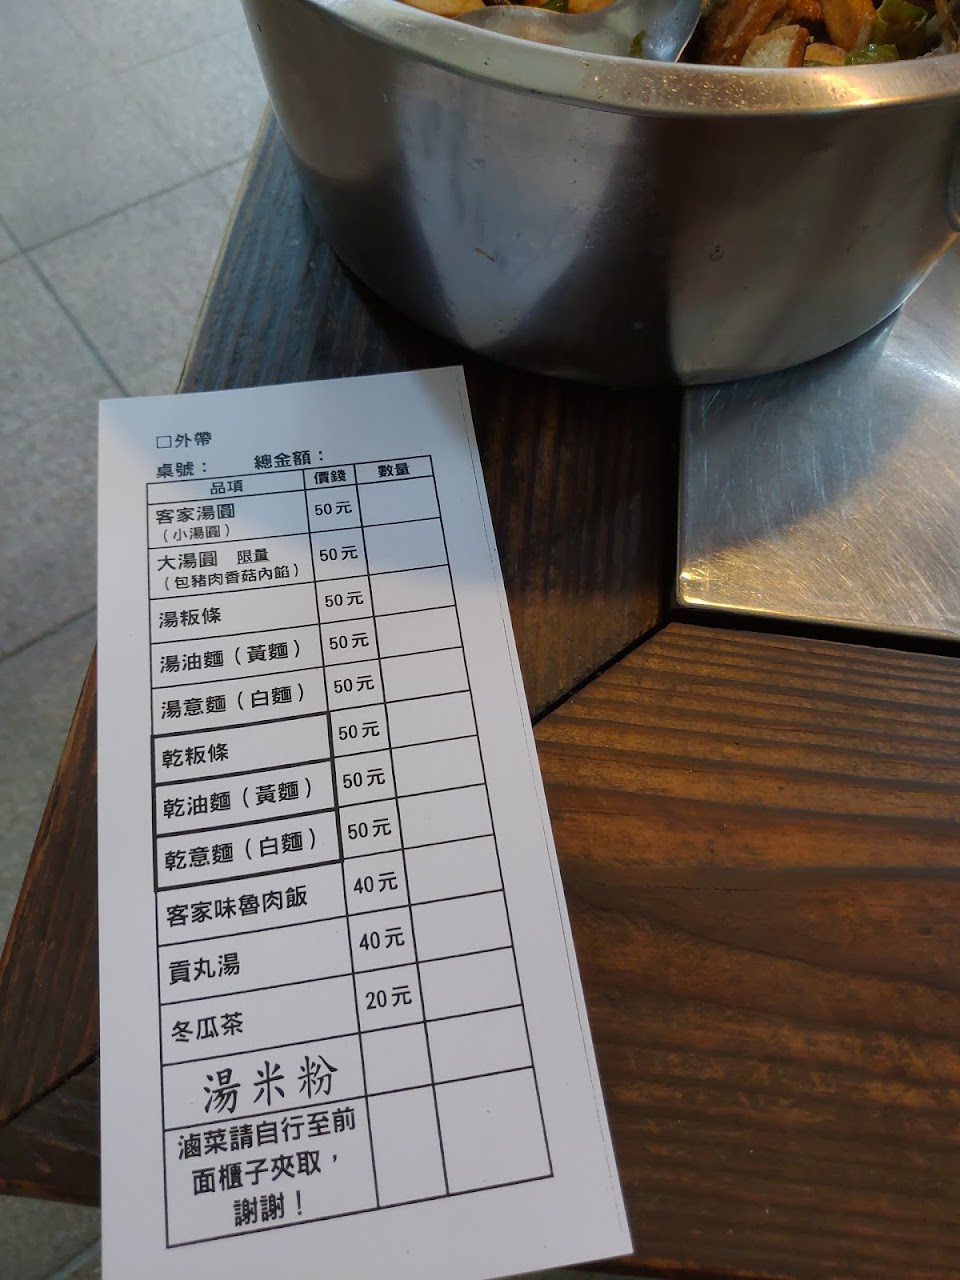 □外帶
桌號： 總金額：
品項 價錢 數量
客家湯圓 50元
（小湯圓）
大湯圓 限量 50元
（包豬肉香菇內餡）
湯粄條 50元
湯油麵（黃麵） 50元
湯意麵（白麵） 50元
乾粄條 50元
乾油麵（黃麵） 50元
乾意麵（白麵） 50元
客家味魯肉飯 40元
貢丸湯 40元
冬瓜茶 20元
湯米粉
滷菜請自行至前
面櫃子夾取，
謝謝！